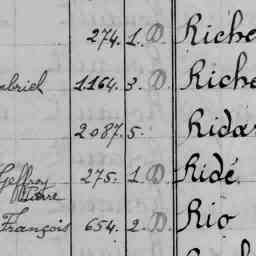 274. 1. D. Riche
abriel 1.164. 3. D. Riche
2087. 5. Rida
Geffroy
Pierre 275. 1. D. Ridé
François 654. 2. D. Rio